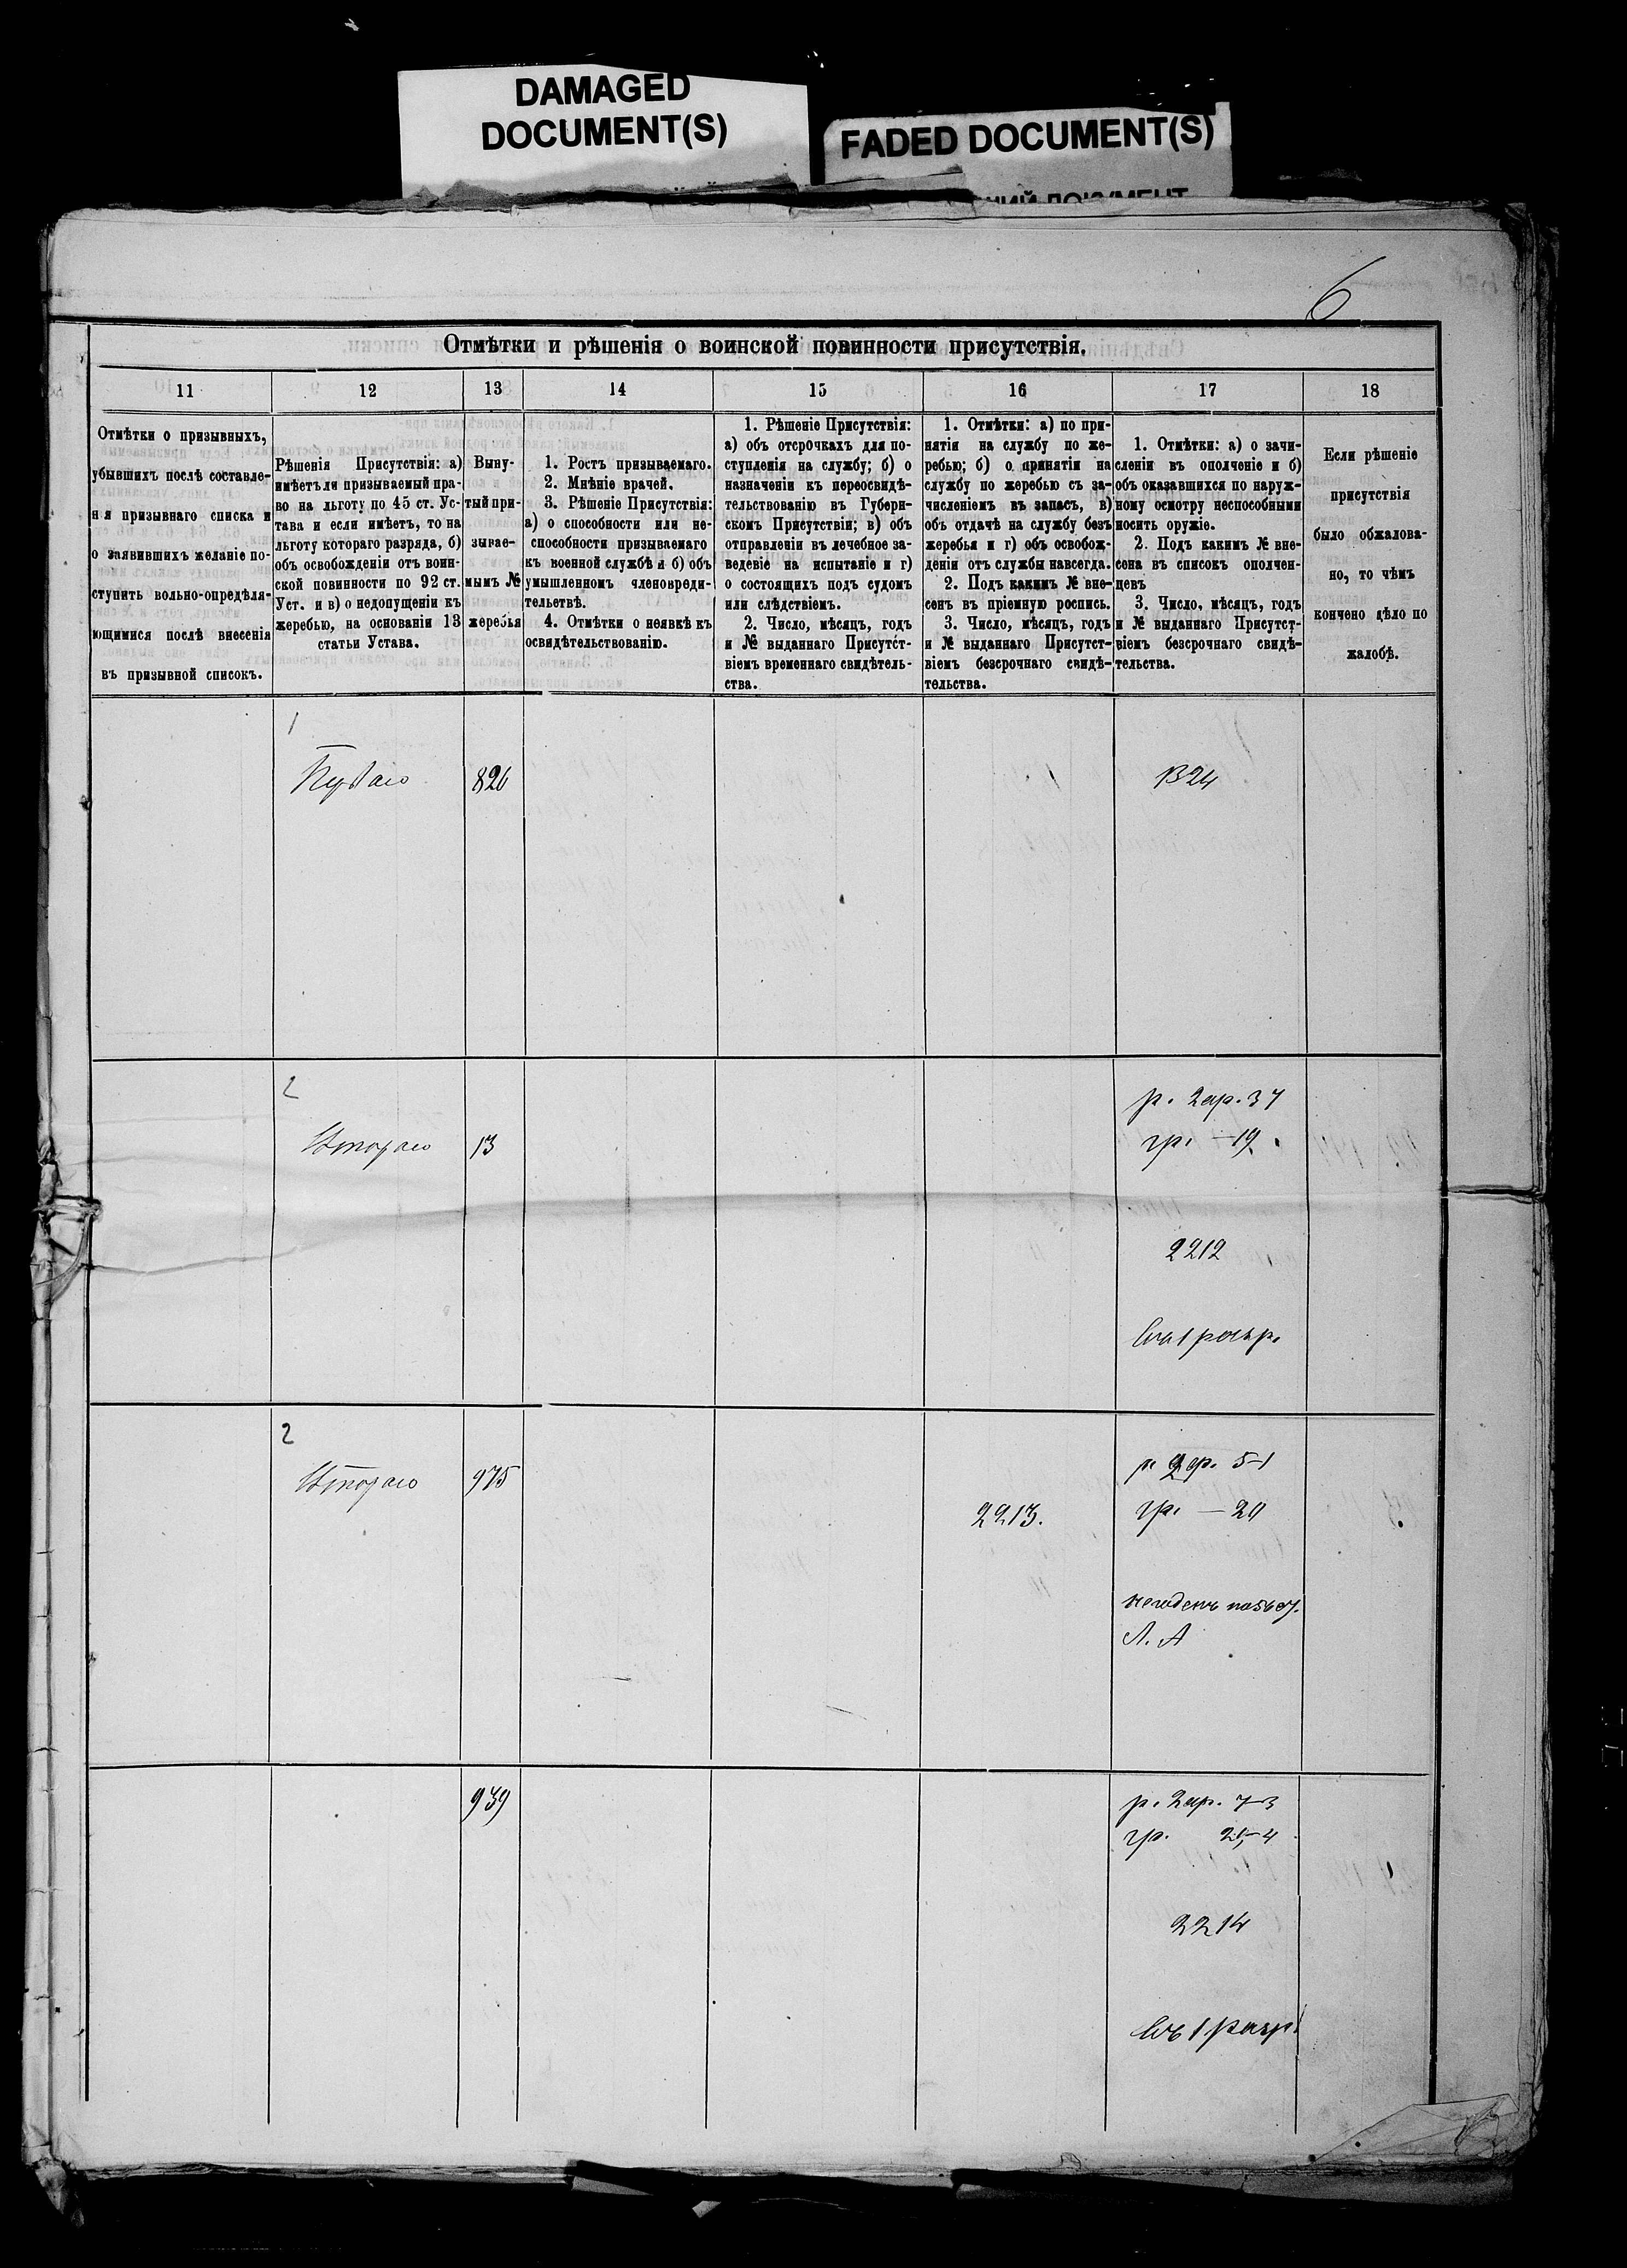 DAMAGED
DOCUMENT(S)
FADED DOCUMENT(S)
6
Отмѣтки и рѣшенія о воинской повинности присутствія.
11 12 13 14 15 16 17 18
Отмѣтки о призывныхъ,
убывшихъ послѣ составле-
н я призывнаго списка и
о заявившихъ желаніе по-
ступить вольно-опредѣля-
ющимися послѣ внесенія
въ призывной списокъ.
Рѣшенія Присутствія: а)
имѣетъ ли призываемый пра-
во на льготу по 45 ст. Ус-
тава и если имѣетъ, то на
льготу котораго разряда, б)
объ освобожденіи отъ воин-
ской повинности по 92 ст.
Уст. и в) о недопущеніи къ
жеребью, на основаніи 13
статьи Устава.
Выну-
тый при-
зывае-
мымъ №
жеребья
1. Ростъ призываемаго.
2. Мнѣніе врачей.
3. Рѣшеніе Присутствія:
а) о способности или не-
способности призываемаго
къ военной службѣ и б) объ
умышленномъ членовреди-
тельствѣ.
4. Отмѣтки о неявкѣ къ
освидѣтельствованію.
1. Рѣшеніе Присутствія:
а) объ отсрочкахъ для по-
ступленія на службу; б) о
назначеніи къ переосвидѣ-
тельствованію въ Губерн-
скомъ Присутствіи; в) объ
отправленіи въ лечебное за-
веденіе на испытаніе и г)
о состоящихъ подъ судомъ
или слѣдствіемъ.
2. Число, мѣсяцъ, годъ
и № выданнаго Присутст-
віемъ временнаго свидѣтель-
ства.
1. Отмѣтки: а) по при-
нятіи на службу по же-
ребью; б) о принятіи на
службу по жеребью съ за-
численіемъ въ запасъ, в)
объ отдачѣ на службу безъ
жеребья и г) объ освобож-
деніи отъ службы навсегда.
2. Подъ какимъ № вне-
сенъ въ пріемную роспись.
3. Число, мѣсяцъ, годъ
и № выданнаго Присутст-
віемъ безсрочнаго свидѣ-
тельства.
1. Отмѣтки: а) о зачи-
сленіи въ ополченіе и б)
объ оказавшихся по наруж-
ному осмотру неспособными
носить оружіе.
2. Подъ какимъ № вне-
сена въ списокъ ополчен-
цевъ
3. Число, мѣсяцъ, годъ
и № выданнаго Присутст-
віемъ безсрочнаго свидѣ-
тельства.
Если рѣшеніе
присутствія
было обжалова-
но, то чѣмъ
кончено дѣло по
жалобѣ.
1
Перваго 826 В24
2
Втораго 13
р. 2ар. 37
гр. — 19.
2212
2
Втораго 975
2213.
р. 2ар. 5-1
гр. — 20
негоденъ по
Л. А
939
р. 2ар. 7-3
гр.
2214
въ 1 разр.